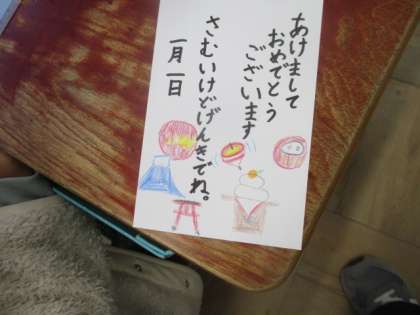 あけまして
おめでとう
ございます
さむいけどげんきでね。
一月一日